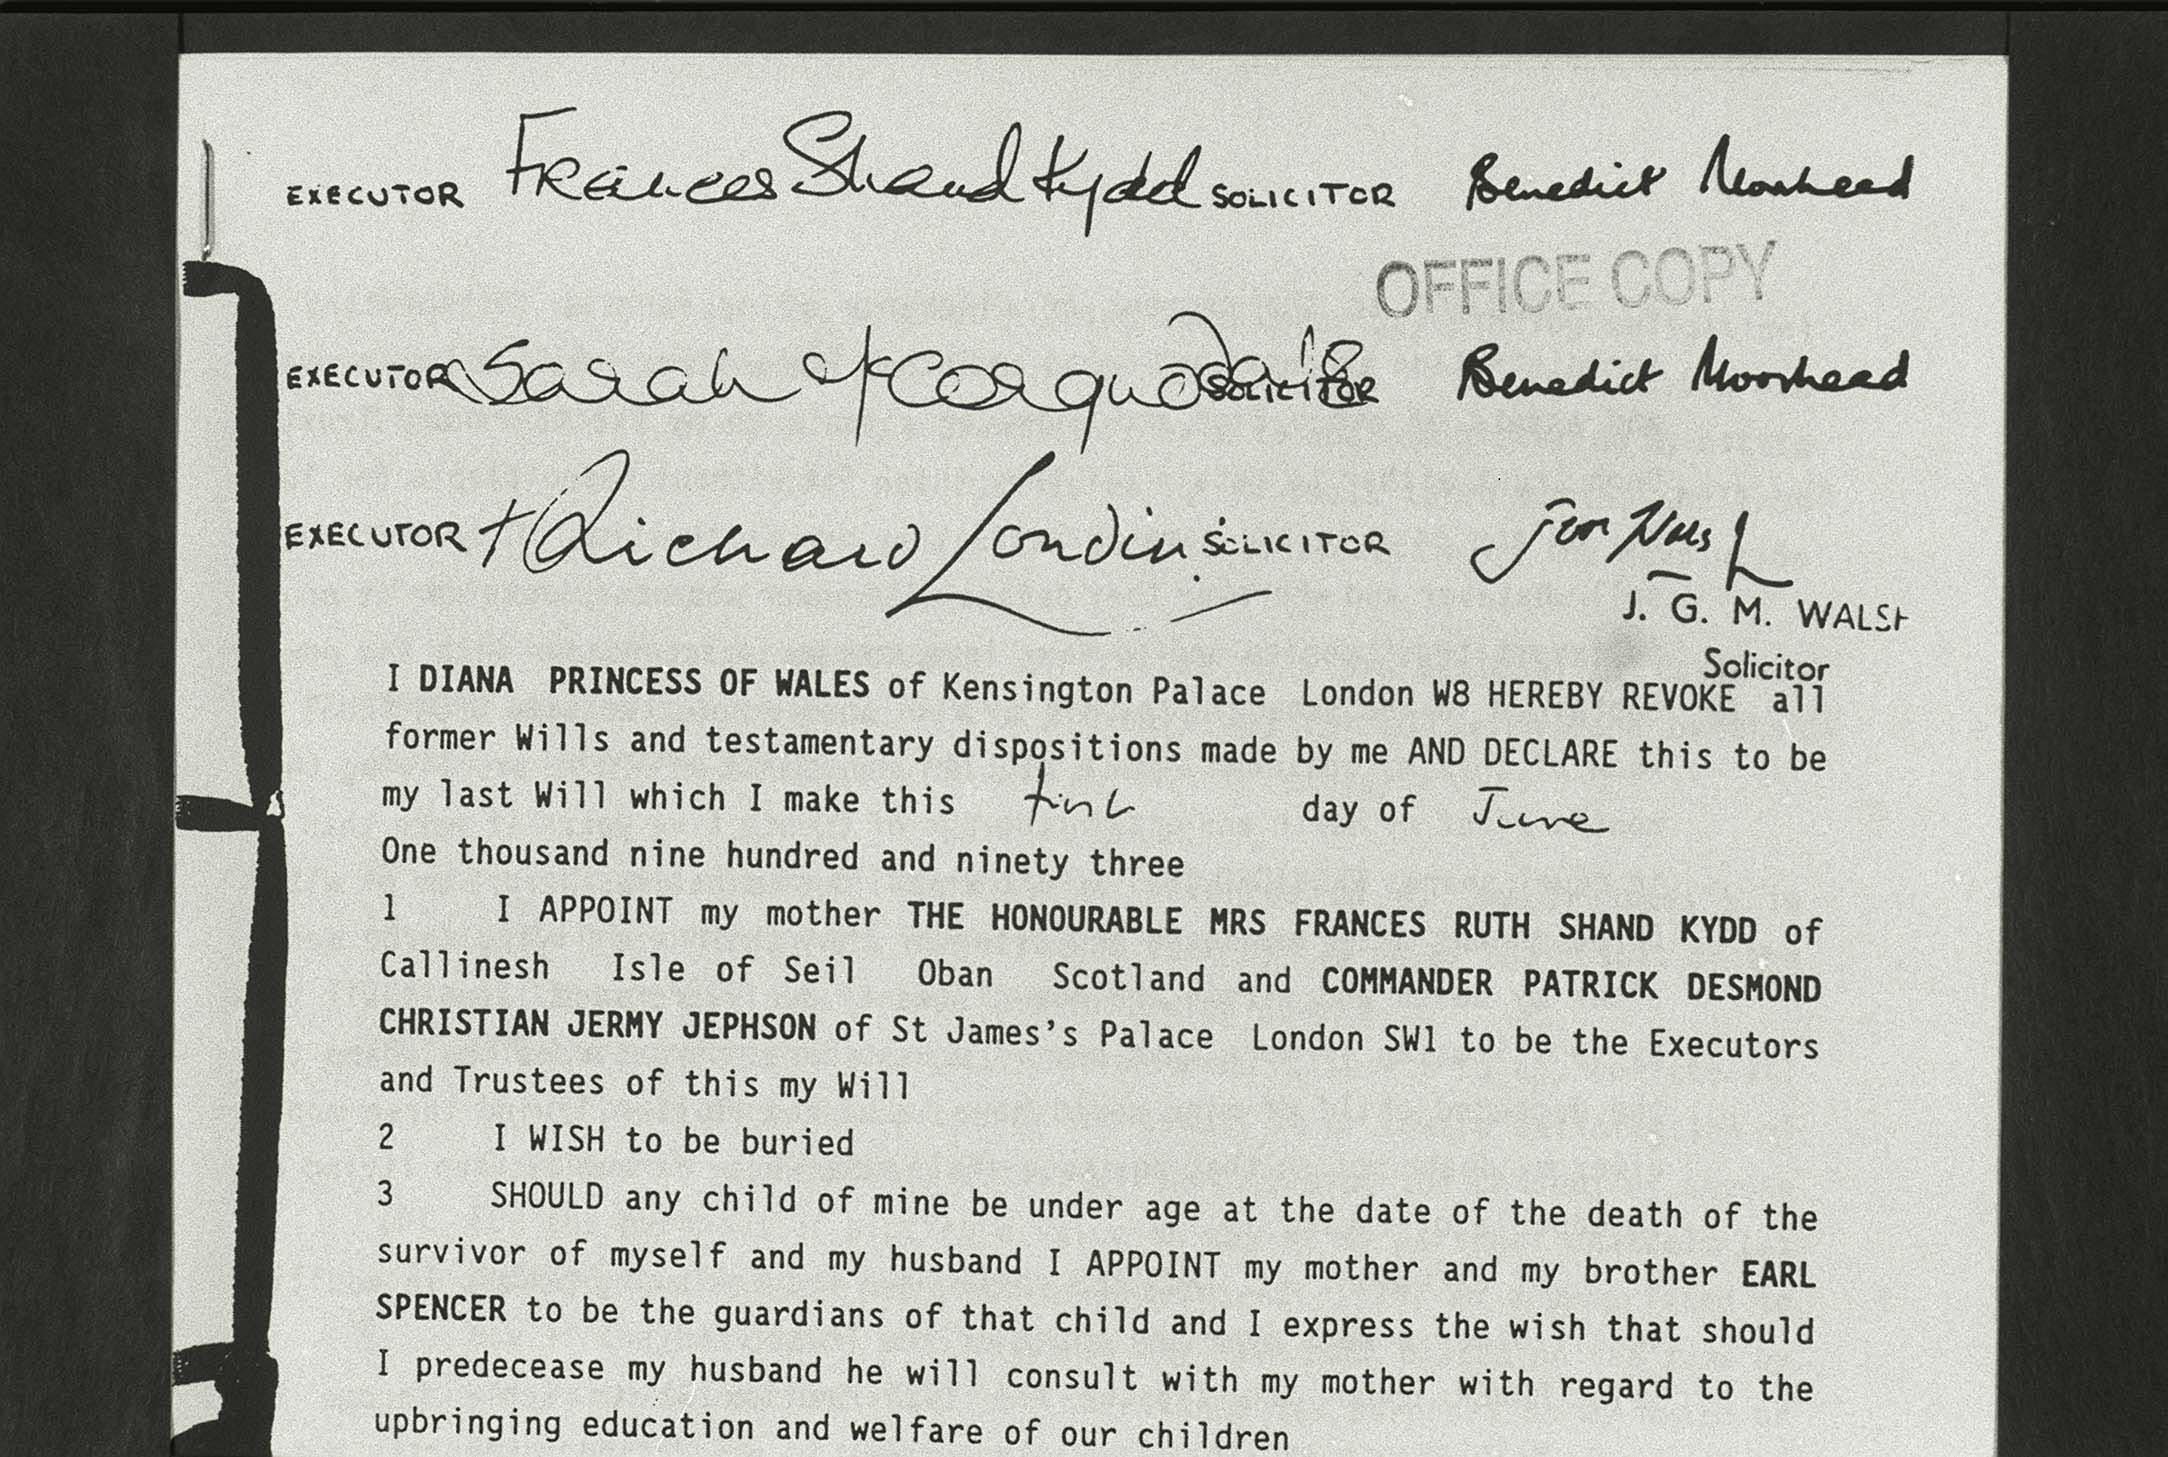 EXECUTOR Frances Shand Kydd SOLICITOR Benedict Moorhead
OFFICE COPY
EXECUTOR Sarah McCorquodale SOLICITOR Benedict Moorhead
EXECUTOR + Richard Londin: SOLICITOR
J. G. M. WALSH
Solicitor
I DIANA PRINCESS OF WALES of Kensington Palace London W8 HEREBY REVOKE all
former Wills and testamentary dispositions made by me AND DECLARE this to be
my last Will which I make this first day of June
One thousand nine hundred and ninety three
1 I APPOINT my mother THE HONOURABLE MRS FRANCES RUTH SHAND KYDD of
Callinesh Isle of Seil Oban Scotland and COMMANDER PATRICK DESMOND
CHRISTIAN JERMY JEPHSON of St James's Palace London SW1 to be the Executors
and Trustees of this my Will
2 I WISH to be buried
3 SHOULD any child of mine be under age at the date of the death of the
survivor of myself and my husband I APPOINT my mother and my brother EARL
SPENCER to be the guardians of that child and I express the wish that should
I predecease my husband he will consult with my mother with regard to the
upbringing education and welfare of our children